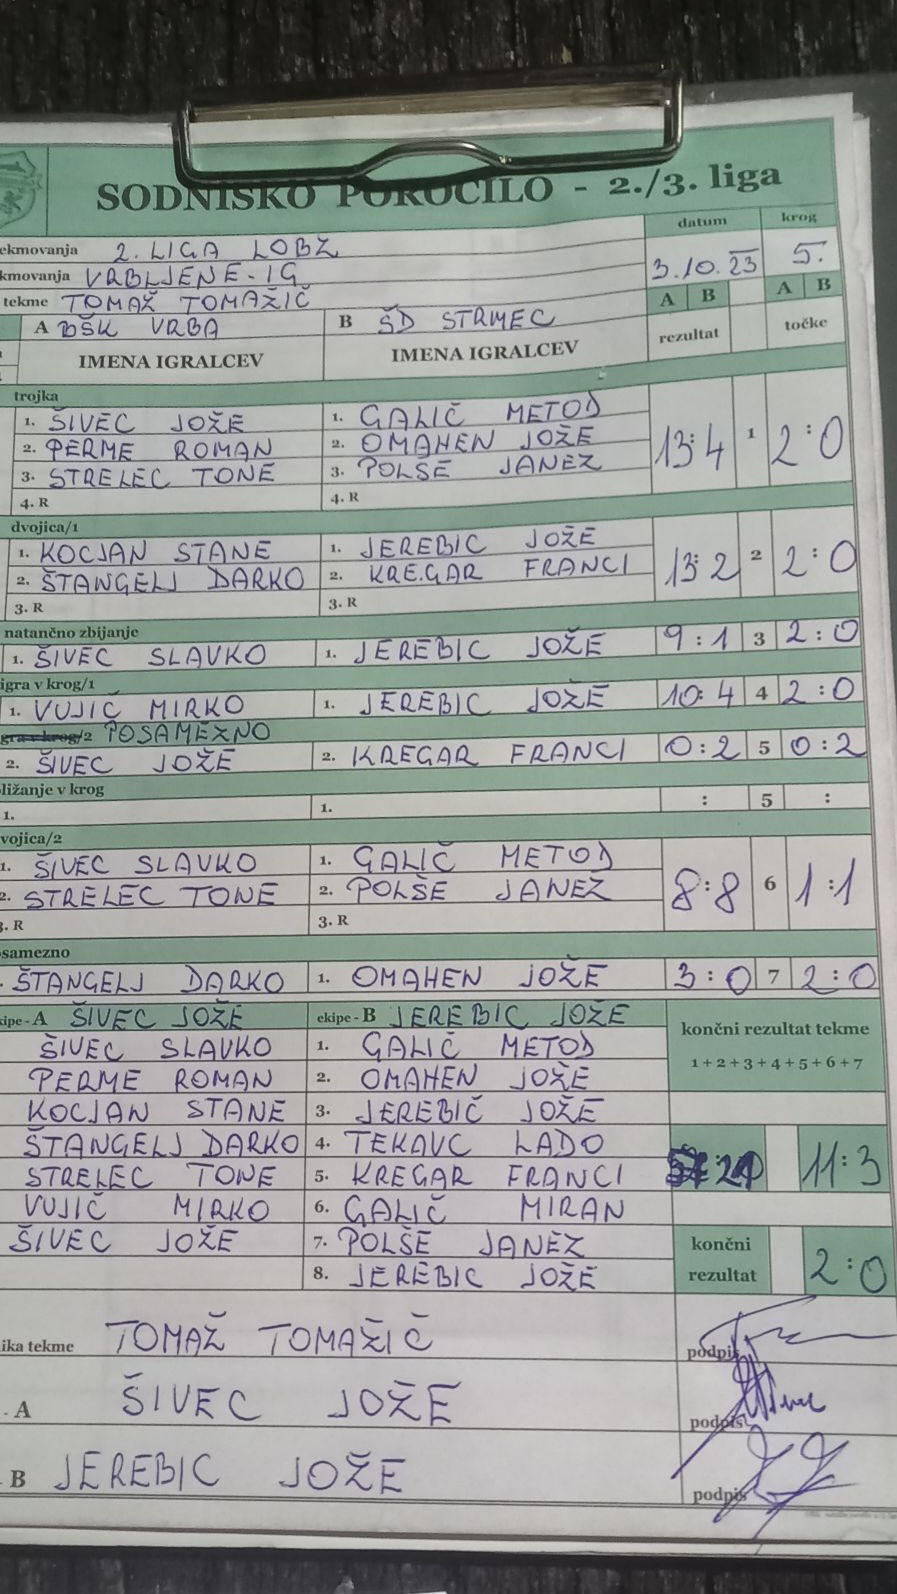 SODNIŠKO POROČILO - 2./3. liga
datum krog
ekmovanja 2. LIGA LOBZ
kmovanja VRBLJENE-IG 3.10.23 5.
tekme TOMAŽ TOMAŽIČ A B A B
A BŠK VRBA B ŠD STRMEC rezultat točke
IMENA IGRALCEV IMENA IGRALCEV
trojka
1. ŠIVEC JOŽE 1. GALIČ METOD
2. PERME ROMAN 2. OMAHEN JOŽE 13:4 1 2:0
3. STRELEC TONE 3. POLŠE JANEZ
4. R 4. R
dvojica/1
1. KOCJAN STANE 1. JEREBIC JOŽE
2. ŠTANGELJ DARKO 2. KREGAR FRANCI 13:2 2 2:0
3. R 3. R
natančno zbijanje
1. ŠIVEC SLAVKO 1. JEREBIC JOŽE 9:1 3 2:0
igra v krog/1
1. VUJIČ MIRKO 1. JEREBIC JOŽE 10:4 4 2:0
gra v krog/2 POSAMEZNO
2. ŠIVEC JOŽE 2. KREGAR FRANCI 0:2 5 0:2
ližanje v krog
1. 1. : 5 :
vojica/2
1. ŠIVEC SLAVKO 1. GALIČ METOD
2. STRELEC TONE 2. POLŠE JANEZ 8:8 6 1:1
3. R 3. R
osamezno
ŠTANGELJ DARKO 1. OMAHEN JOŽE 3:0 7 2:0
kipe - A ŠIVEC JOŽE ekipe - B JEREBIC JOŽE
končni rezultat tekme
ŠIVEC SLAVKO 1. GALIČ METOD
1 + 2 + 3 + 4 + 5 + 6 + 7
PERME ROMAN 2. OMAHEN JOŽE
KOCJAN STANE 3. JEREBIČ JOŽE
ŠTANGELJ DARKO 4. TEKAVC LADO 11:3
STRELEC TONE 5. KREGAR FRANCI
VUJIČ MIRKO 6. GALIČ MIRAN
ŠIVEC JOŽE 7. POLŠE JANEZ
8. JEREBIC JOŽE
končni rezultat 2:0
ika tekme TOMAŽ TOMAŽIČ podpis
- A ŠIVEC JOŽE podpis
B JEREBIC JOŽE podpis